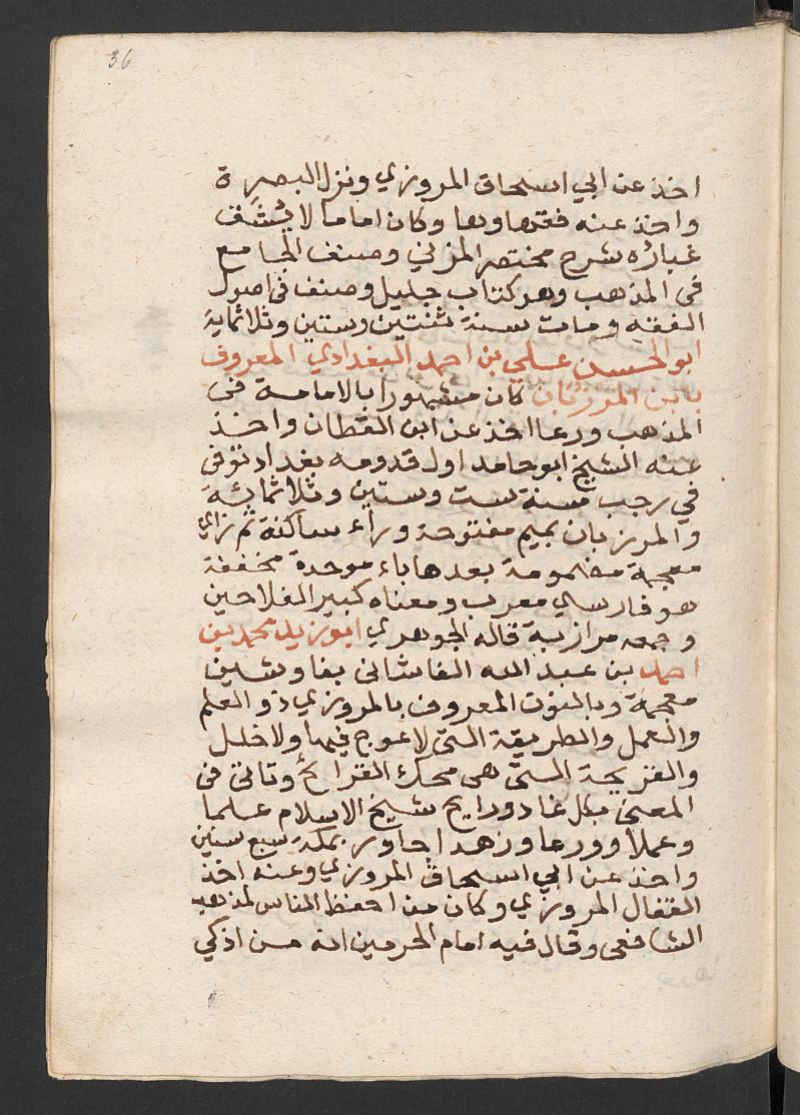 36
اخذ عن ابي اسحاق المروزي ونزل البصرة
واخذ عنه فقهاوها وكان اماما لا يشقّ
غباره شرح مختصر المزني وصنف الجامع
فى المذهب وهو كتاب جليل وصنف فى اصول
الفقه ومات سنة ثنتين وستين وثلاثماية
ابو الحسين علي بن احمد البغدادي المعروف
بابن المرزبان كان مشهورا بالامامة فى
المذهب ورعا اخذ عن ابن القطان واخذ
عنه الشيخ ابو حامد اول قدومه بغداد توفى
في رجب سنة ست وستين وثلاثمائة
والمرزبان بميم مفتوحة وراء ساكنة ثم زاي
معجمة مضمومة بعدها باء موحدة مخففة
هو فارسي معرب ومعناه كبير الفلاحين
وجمعه مرازبة قاله الجوهري ابو زيد محمد بن
احمد بن عبد الله الفاشانى بفا وشين
معجمة وبالنون المعروف بالمروزي ذو العلم
والعمل والطريقة التى لا عوج فيها ولا خلل
والقريحة التى هى محك القرائح وتاتى فى
المعنى بكل غاد ورايح شيخ الاسلام علما
وعملا وورعا وزهدا جاور بمكة سبع سنين
واخذ عن ابي اسحاق المروزي وعنه اخذ
القفال المروزي وكان من احفظ الناس لمذهب
الشافعى وقال فيه امام الحرمين انه من اذكي